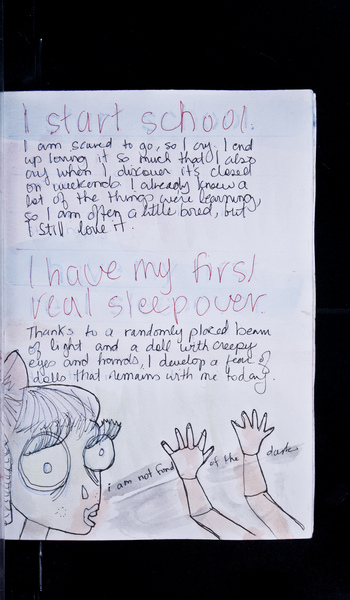 I start school.
I am scared to go, so I cry. I end
up loving it so much that I also
cry when I discover it's closed
on weekends. I already knew a
lot of the things we're learning,
so I am often a little bored, but
I still love it.
I have my first
real sleepover.
Thanks to a randomly placed beam
of light and a doll with creepy
eyes and hands, I develop a fear of
dolls that remains with me today.
i am not fond of the dark